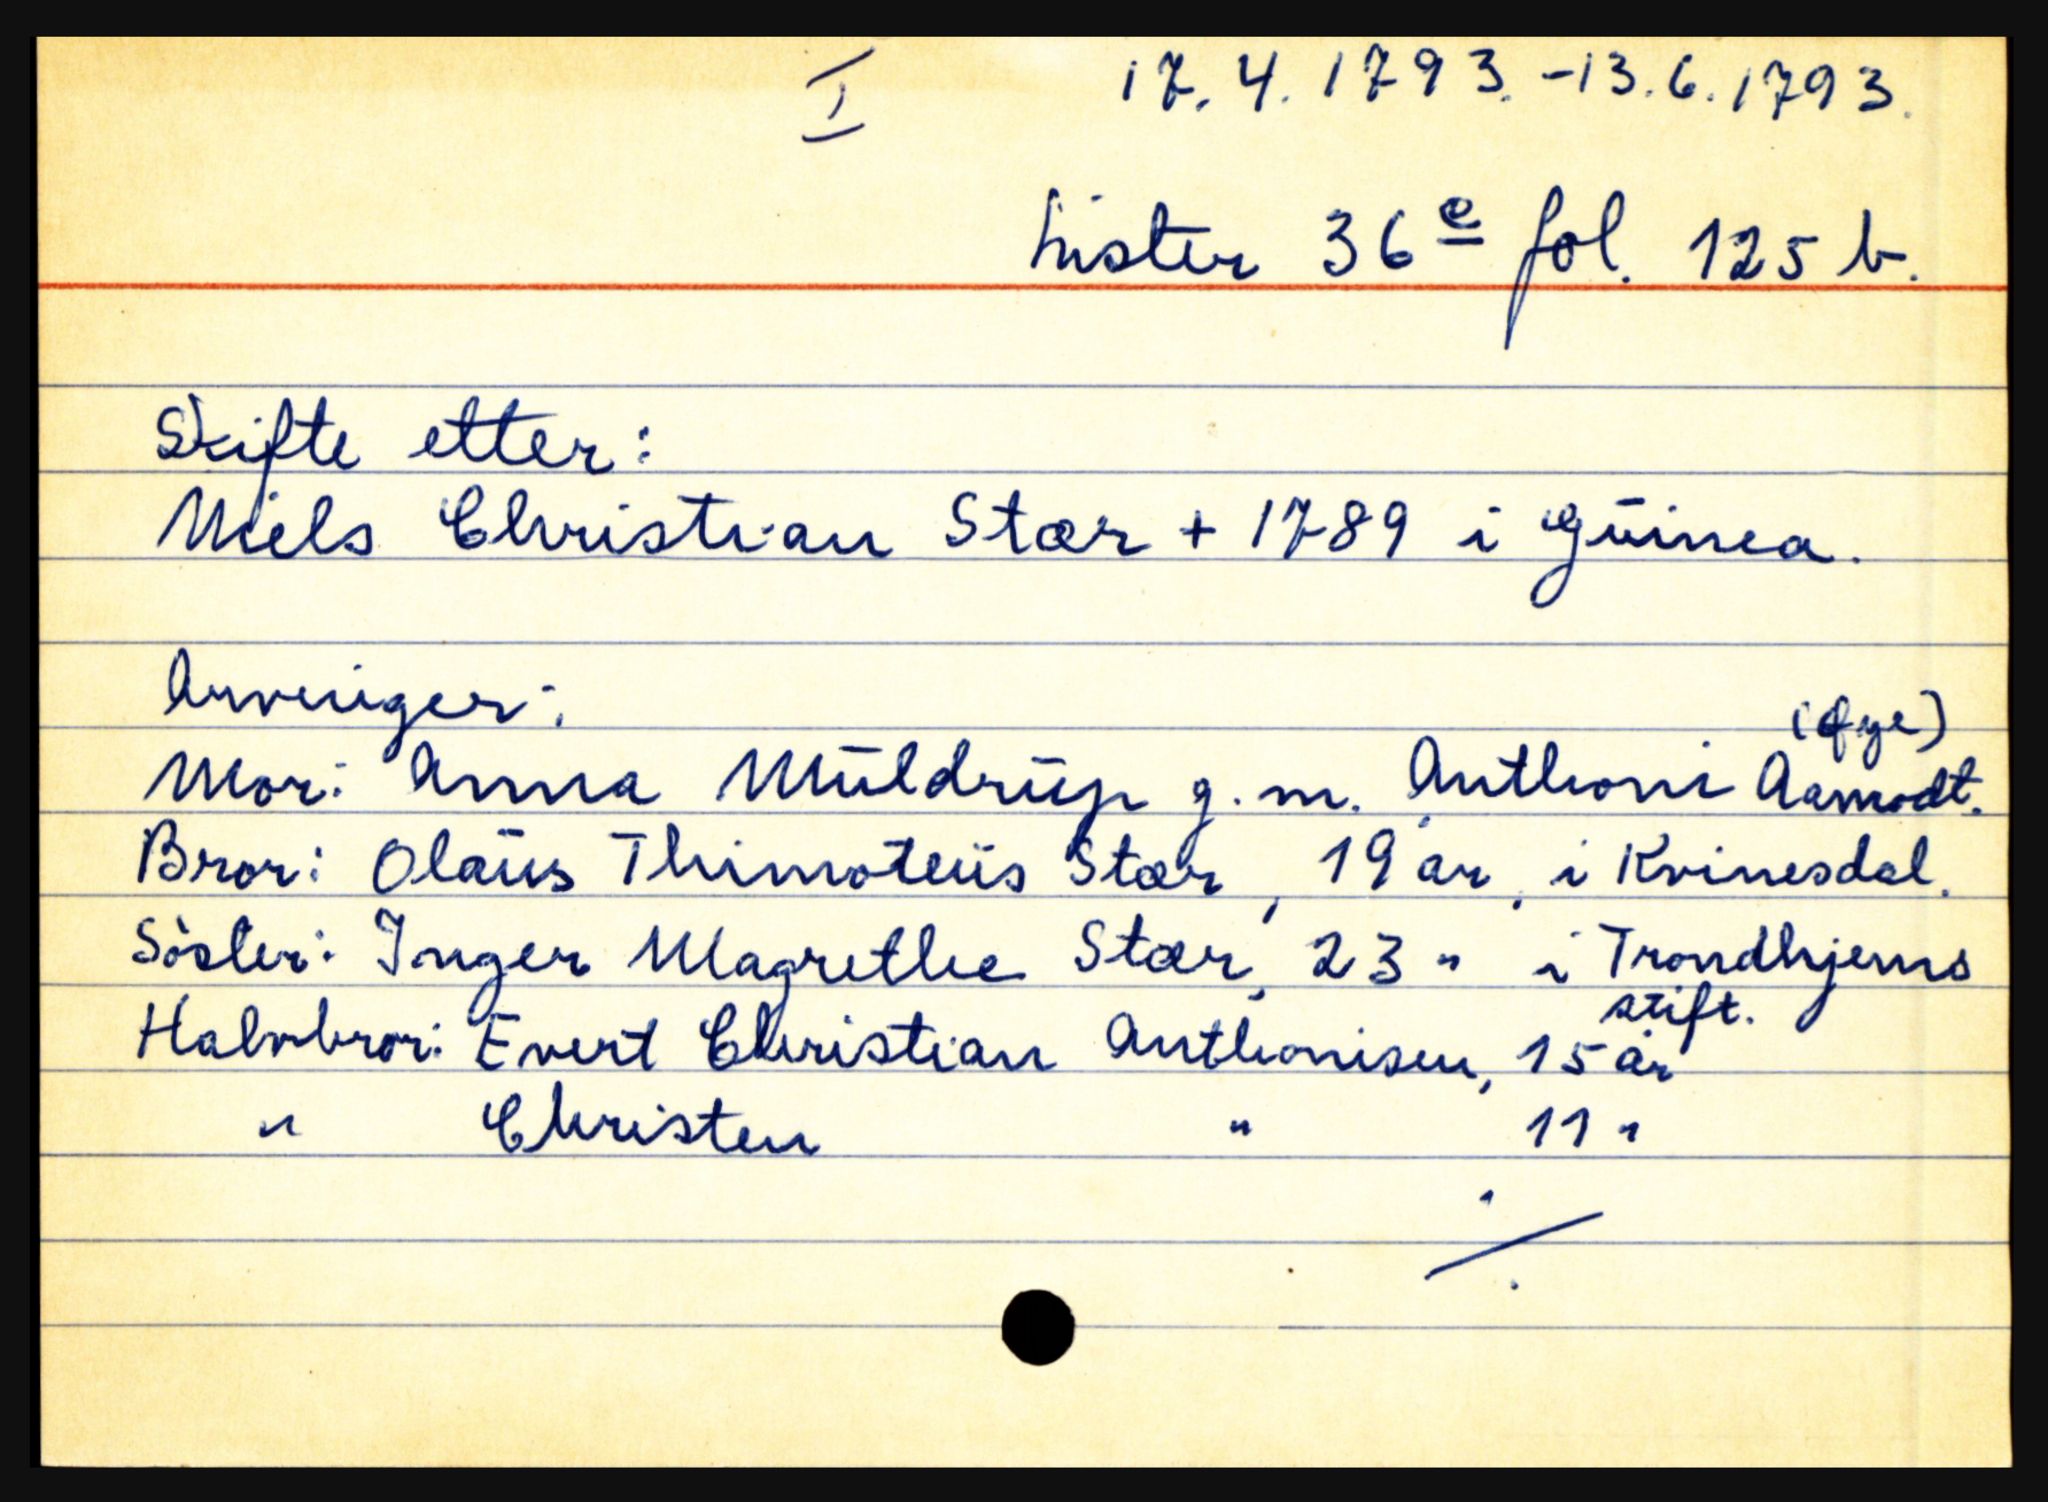 I 17.4.1793.-13.6.1793.
Lister 36e fol. 125 b.
Skifte etter:
Niels Christian Stær + 1789 i Guinea.
Arvinger:
(Øye)
Mor: Anna Müldrup g.m. Anthoni Aamodt.
Bror: Olaus Thimoteus Stær, 19 år, i Kvinesdal.
Söster: Inger Magrethe Stær, 23 " i Trondhjems
stift.
Halvbror: Evert Christian Anthonisen, 15 år
" Christen " 11 "